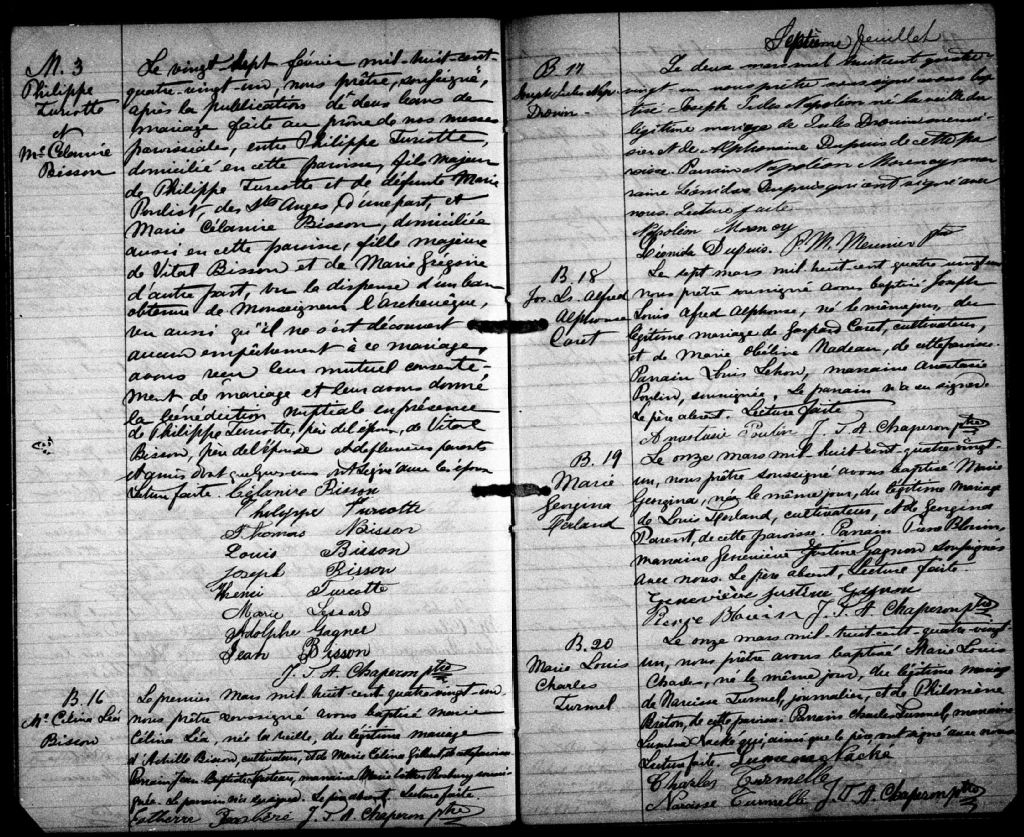 M. 3
Philippe
Turcotte
et
Mie Célanire
Bisson
Le vingt-sept février mil-huit-cent-
quatre-vingt-un, nous prêtre, soussigné,
après la publication de deux bans de
mariage faite au prône de nos messes
paroissiales, entre Philippe Turcotte,
domicilié en cette paroisse, fils majeur
de Philippe Turcotte et de défunte Marie
des Sts Anges d'une part, et
Marie Célanire Bisson, domiciliée
aussi en cette paroisse, fille majeure
de Vital Bisson et de Marie Grégoire
d'autre part, vu la dispense d'un ban
obtenue de Monseigneur l'Archevêque,
vu aussi qu'il ne s'est découvert
aucun empêchement à ce mariage,
avons reçu leur mutuel consente-
ment de mariage et leur avons donné
la bénédiction nuptiale en présence
de Philippe Turcotte, père de l'époux, de Vital
Bisson, père de l'épouse et de plusieurs parents
et amis dont quelques uns ont signé avec les époux
Lecture faite. Célanire Bisson
Philippe Turcotte
Thomas Bisson
Louis Bisson
Joseph Bisson
Henri Turcotte
Marie Lessard
Adolphe Gagner
Jean Bisson
J. T. A. Chaperon ptre
B. 16
Me Célina Léa
Bisson
Le premier Mars mil huit cent quatre-vingt-un
nous prêtre soussigné avons baptisé Marie
Célina Léa, née la veille, du légitime mariage
d'Achille Bisson, cultivateur, et de Marie Célina Gilbert, de cette paroisse.
Parrain, Jean Baptiste marraine Marie
Le parrain n'a su signer. Le père absent. Lecture faite
J. T. A. Chaperon ptre
Septième feuillet
B. 17
Joseph Jules Nap.
Drouin
Le deux mars mil huit cent quatre
vingt-un nous prêtre soussigné avons bap
tisé Joseph Jules Napoléon né la veille du
légitime mariage de Jules Drouin menui
sier et de Alphonsine Dupuis de cette pa
roisse. Parrain Napoléon Morency mar
raine Léonidas Dupuis qui ont signé avec
nous. Lecture faite
Napoléon Morency
Dupuis. P. M. Meunier Ptre
B. 18
Jos. Ls. Alfred
Alphonse
Caret
Le sept mars mil huit-cent quatre-vingt-un
nous prêtre soussigné avons baptisé Joseph
Louis Alfred Alphonse, né le même jour, du
légitime mariage de Gaspard Caret, cultivateur,
et de Marie Obéline Nadeau, de cette paroisse.
Parrain Louis marraine Anastasie
Poulin, soussignée. Le parrain n'a su signer
Le père absent. Lecture faite
Anastasie Poulin J. T. A. Chaperon ptre
B. 19
Marie
Georgina
Ferland
Le onze mars mil-huit-cent-quatre-vingt-
un, nous prêtre soussigné avons baptisé Marie
Georgina, née le même jour, du légitime mariage
de Louis Ferland, cultivateur, et de Georgina
Parent, de cette paroisse. Parrain Pierre Blouin,
marraine Geneviève Justine Gagnon soussignés
avec nous. Le père absent, Lecture faite.
Geneviève Justine Gagnon
Pierre Blouin J. T. A. Chaperon ptre
B. 20
Marie Louis
Charles
Turmel
Le onze mars mil-huit-cent-quatre-vingt-
un, nous prêtre avons baptisé Marie Louis
Charles, né le même jour, du légitime mariage
de Narcisse Turmel, journalier, et de Philomène
Breton, de cette paroisse. Parrain Charles Turmel, marraine
qui, ainsi que le père, ont signé avec nous
Lecture faite.
Charles Turmelle
Narcisse Turmelle J. T. A. Chaperon ptre